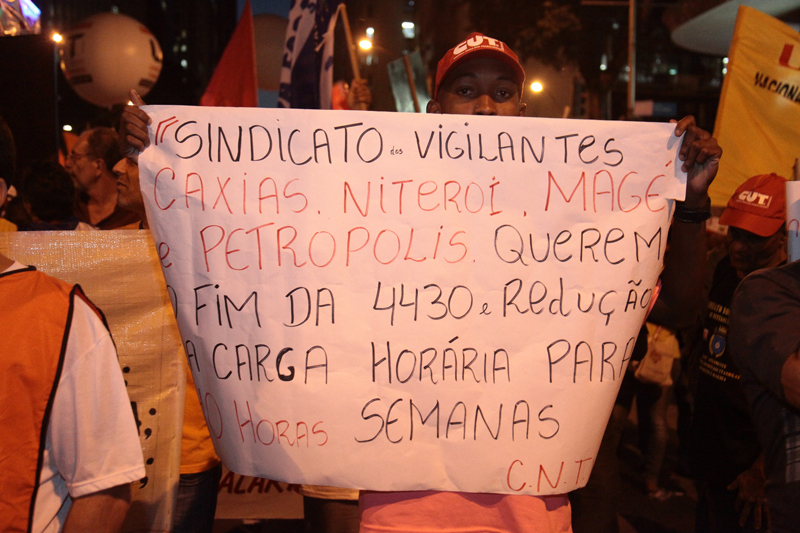 "SINDICATO dos VIGILANTES
CAXIAS. NITEROI, MAGÉ
e PETROPOLIS. QUEREM
FIM DA 4430 e REDUÇÃO
A CARGA HORÁRIA PARA
0 HORAS SEMANAS
C.N.T
CUT
CUT
NACIONAL
ALARI